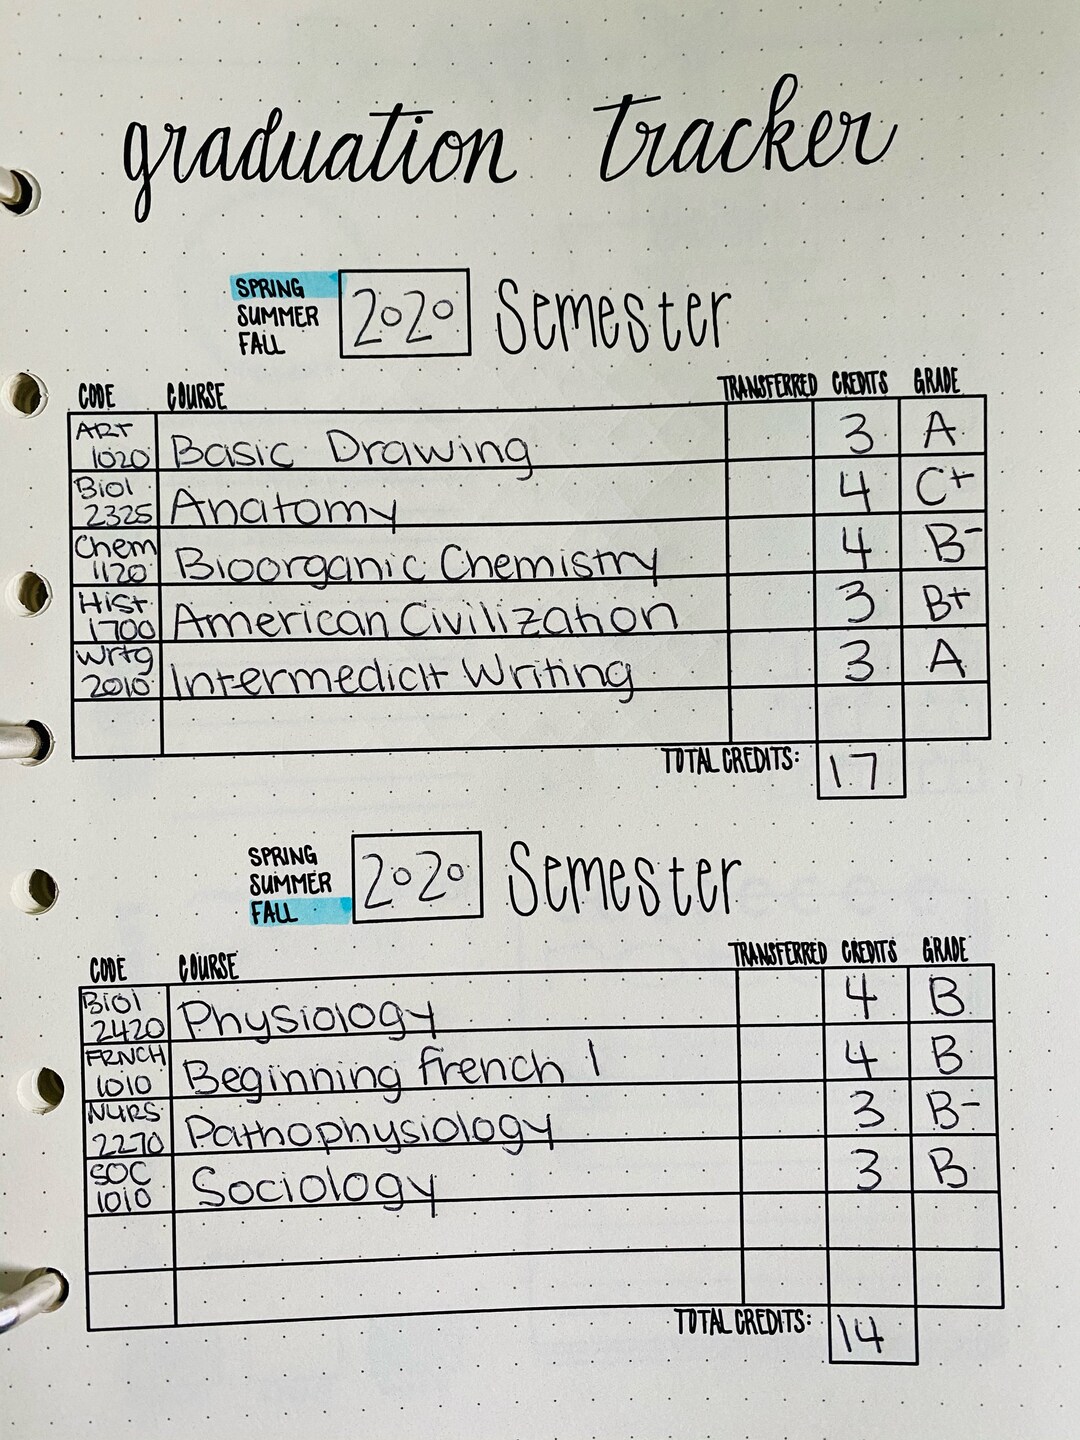 graduation tracker
SPRING
SUMMER
FALL
2020 Semester
CODE COURSE TRANSFERRED CREDITS GRADE
ART 1020 Basic Drawing 3 A
Biol 2325 Anatomy 4 C+
Chem 1120 Bioorganic Chemistry 4 B-
Hist 1700 American Civilization 3 B+
Wrtg 2010 Intermediate Writing 3 A
TOTAL CREDITS: 17
SPRING
SUMMER
FALL
2020 Semester
CODE COURSE TRANSFERRED CREDITS GRADE
Biol 2420 Physiology 4 B
FRNCH 1010 Beginning french 1 4 B
NURS 2270 Pathophysiology 3 B-
SOC 1010 Sociology 3 B
TOTAL CREDITS: 14